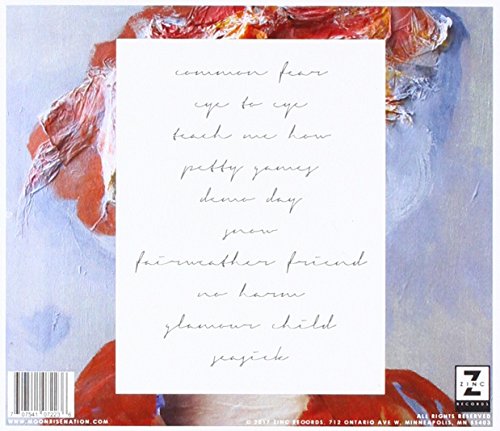 common fear
eye to eye
teach me how
petty games
demo day
snow
fairweather friend
no harm
glamour child
seasick
Z
ZINC
RECORDS
ALL RIGHTS RESERVED
WWW.MOONRISENATION.COM
© 2017 ZINC RECORDS. 712 ONTARIO AVE W. MINNEAPOLIS, MN 55403